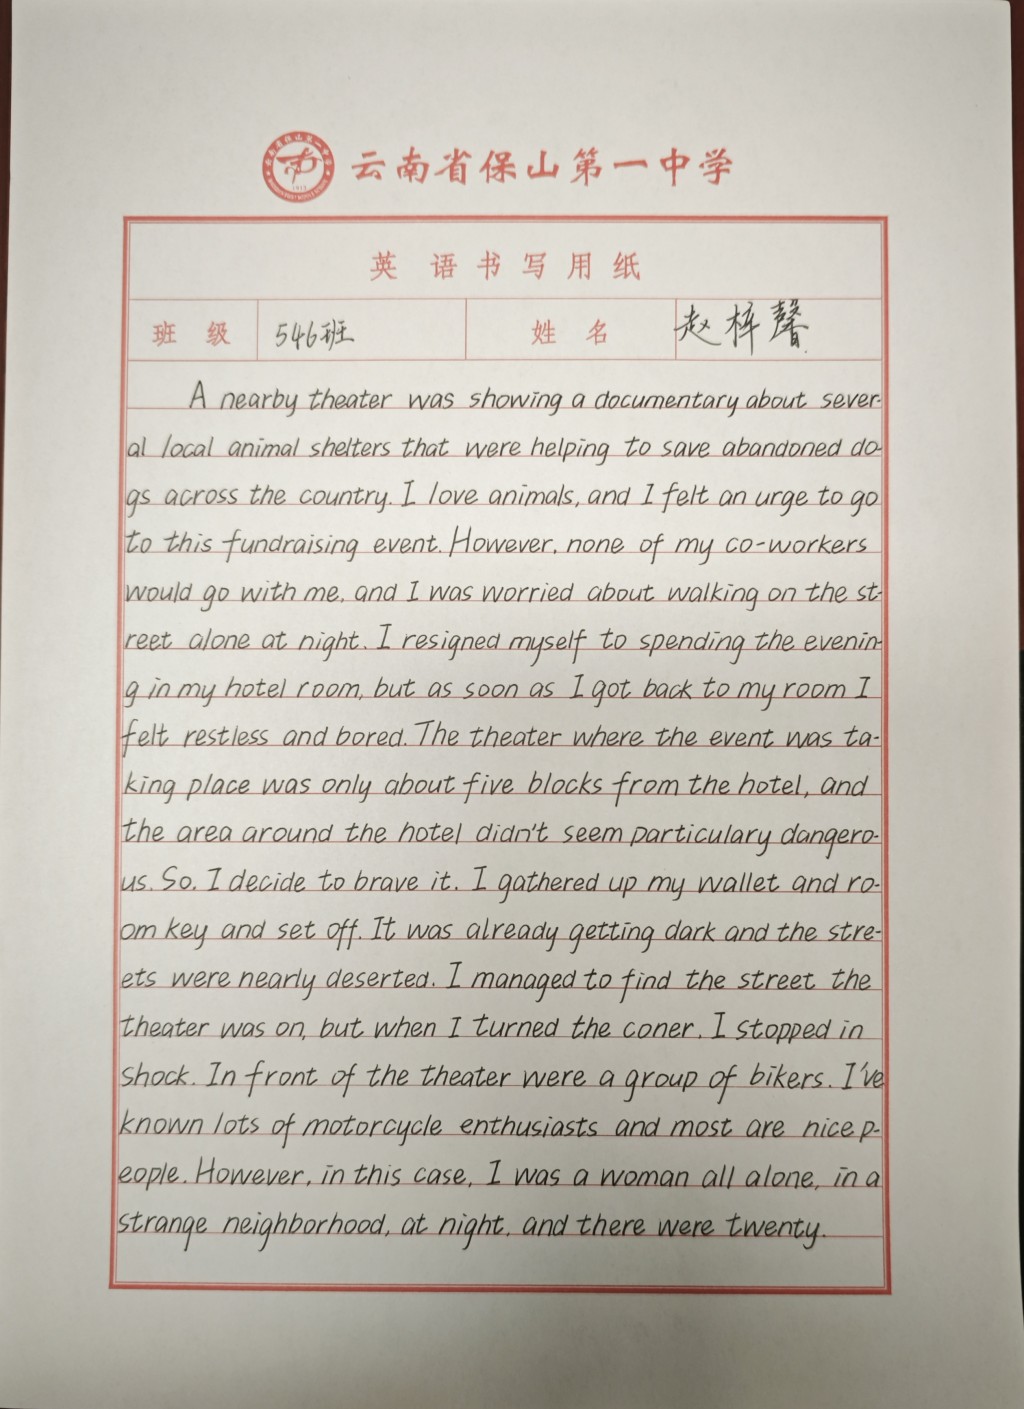 云南省保山第一中学
英语书写用纸
班级 546班 姓名 赵梓馨
A nearby theater was showing a documentary about sever-
al local animal shelters that were helping to save abandoned do-
gs across the country. I love animals, and I felt an urge to go
to this fundraising event. However, none of my co-workers
would go with me, and I was worried about walking on the st-
reet alone at night. I resigned myself to spending the evenin-
g in my hotel room, but as soon as I got back to my room I
felt restless and bored. The theater where the event was ta-
king place was only about five blocks from the hotel, and
the area around the hotel didn't seem particulary dangero-
us. So, I decide to brave it. I gathered up my wallet and ro-
om key and set off. It was already getting dark and the stre-
ets were nearly deserted. I managed to find the street the
theater was on, but when I turned the coner, I stopped in
shock. In front of the theater were a group of bikers. I've
known lots of motorcycle enthusiasts and most are nice p-
eople. However, in this case, I was a woman all alone, in a
strange neighborhood, at night, and there were twenty.